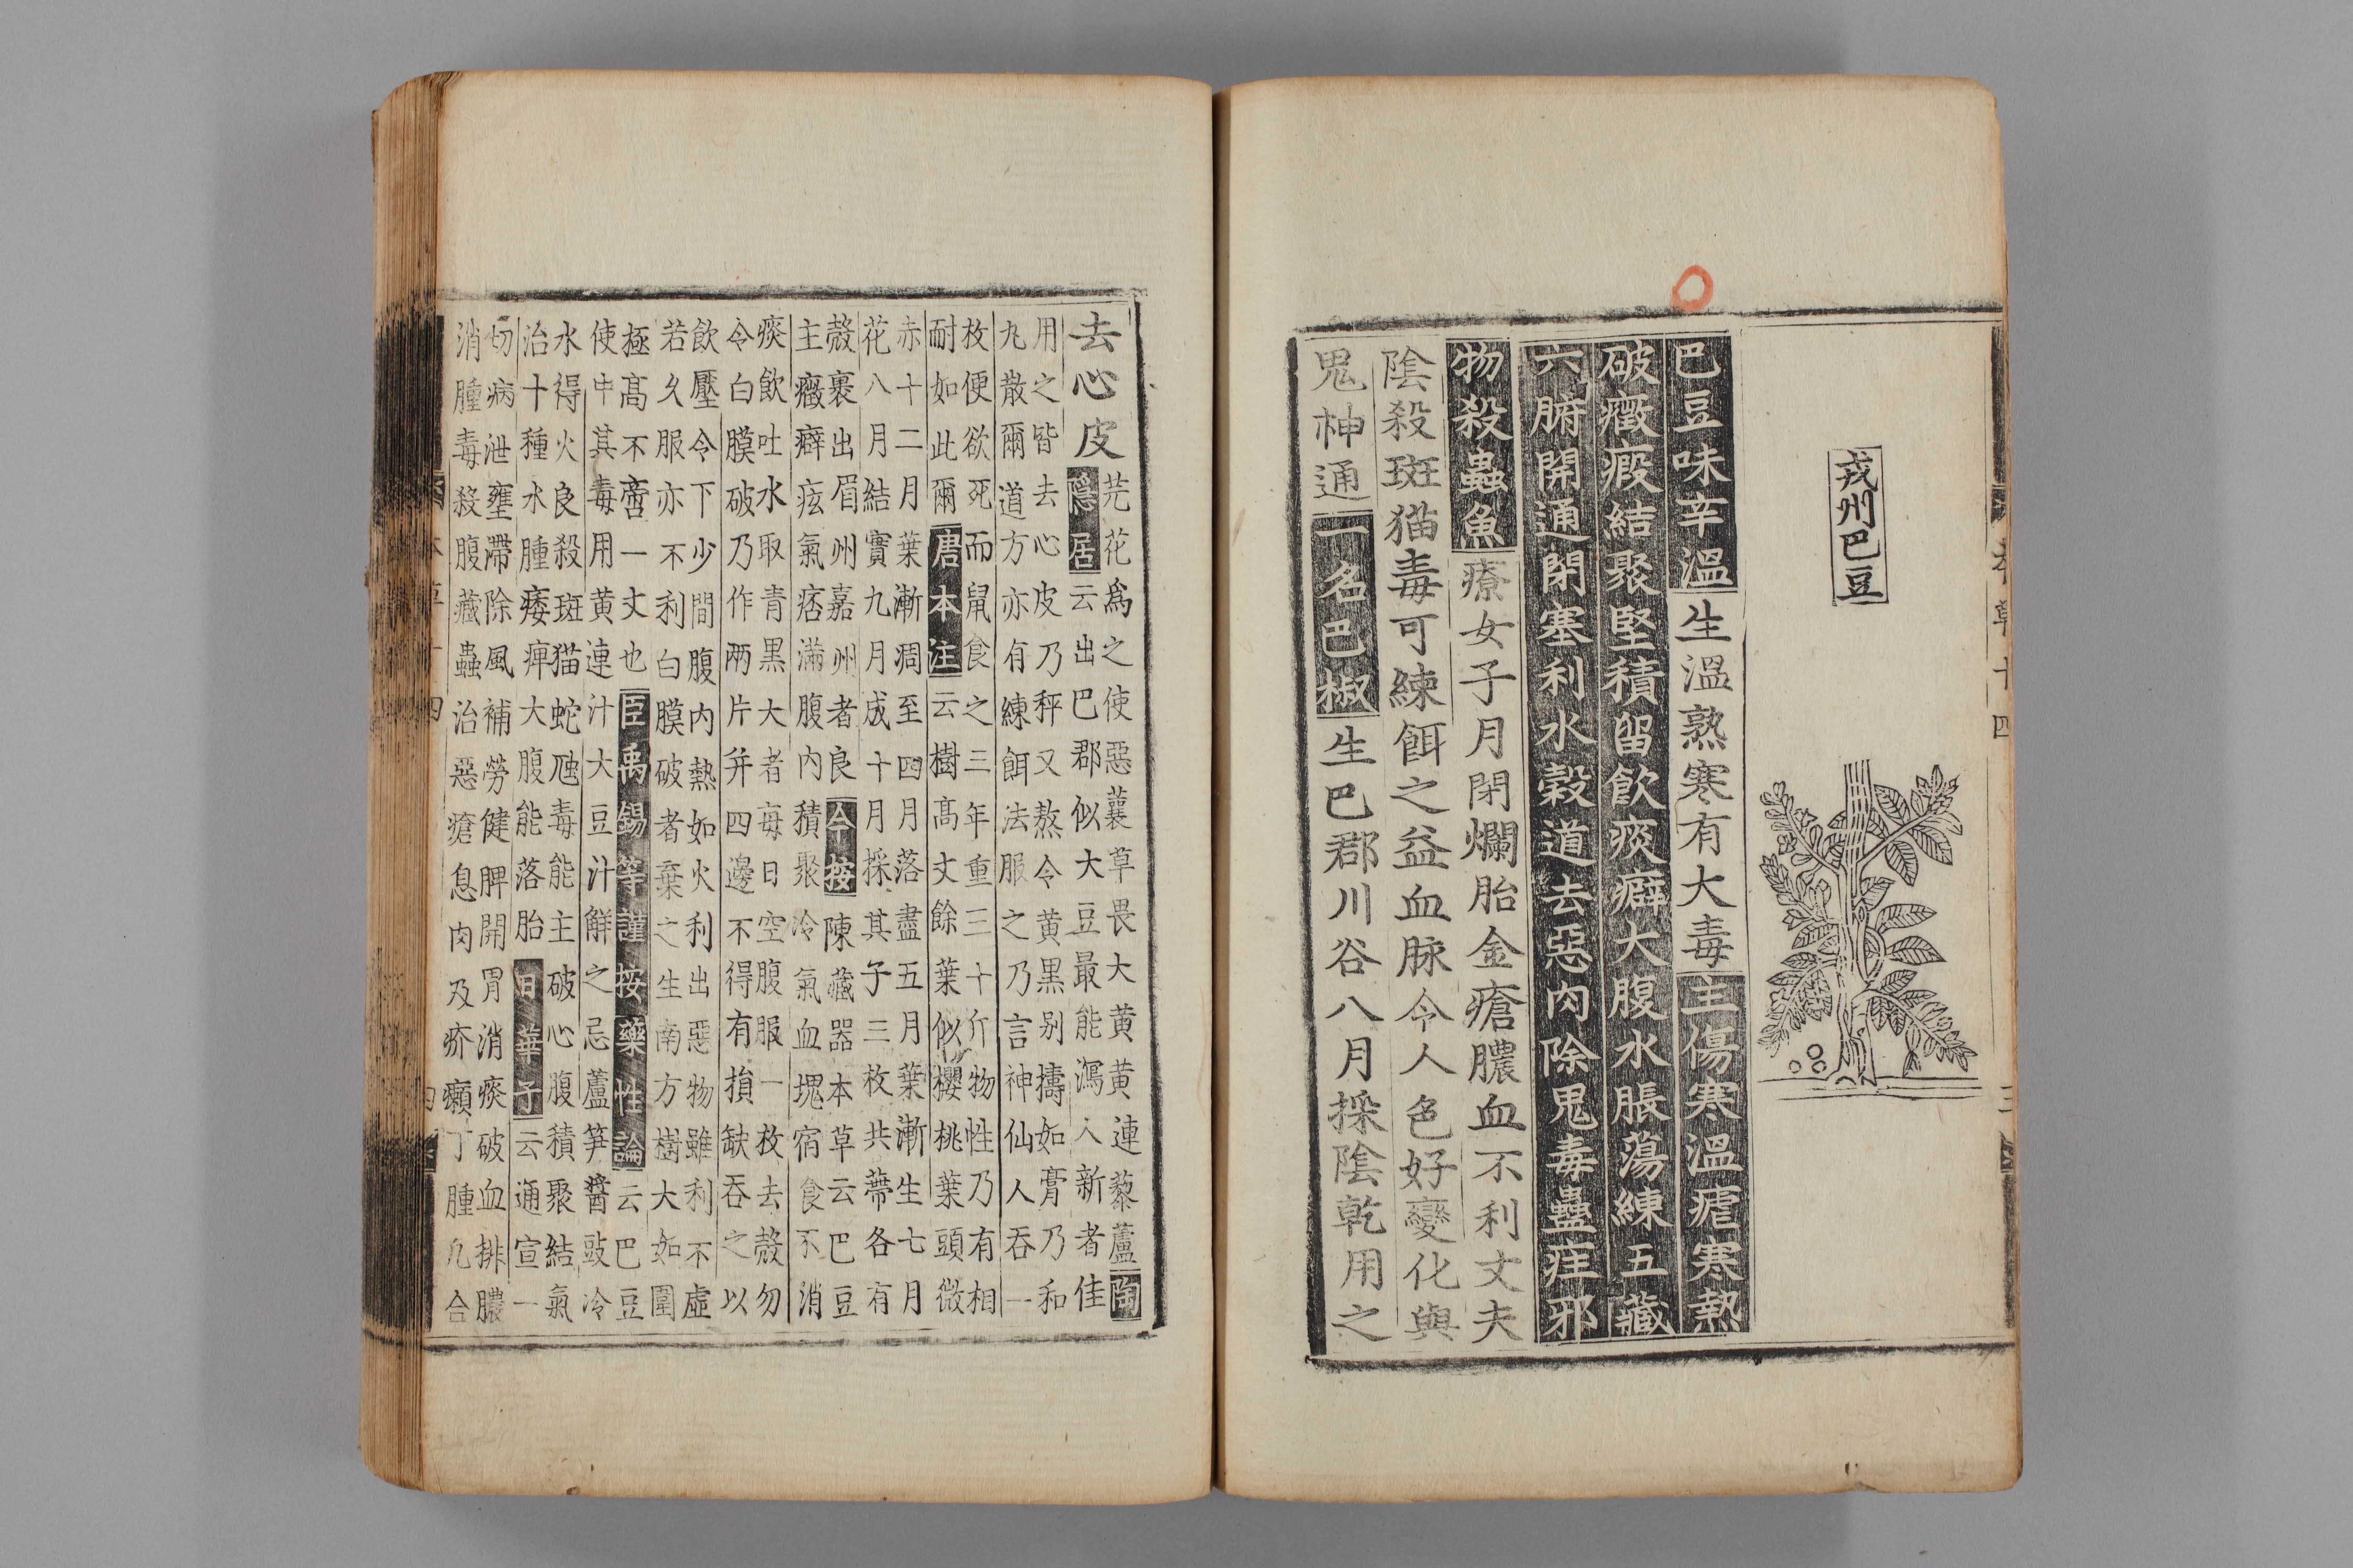 戎州巴豆
巴豆味辛溫生溫熟寒有大毒主傷寒溫瘧寒熱
破癥瘕結聚堅積留飲痰癖大腹水脹蕩練五藏
六腑開通閉塞利水穀道去惡肉除鬼毒蠱疰邪
物殺蟲魚療女子月閉爛胎金瘡膿血不利丈夫
陰殺斑猫毒可練餌之益血脉令人色好變化與
鬼神通一名巴椒生巴郡川谷八月採陰乾用之
去心皮
芫花爲之使惡蘘草畏大黄黄連藜蘆陶
隱居云出巴郡似大豆最能瀉人新者佳
用之皆去心皮乃秤又熬令黄黑别擣如膏乃和
丸散爾道方亦有練餌法服之乃言神仙人吞一
枚便欲死而鼠食之三年重三十斤物性乃有相
耐如此爾唐本注云樹高丈餘葉似櫻桃葉頭微
赤十二月葉漸凋至四月落盡五月葉漸生七月
花八月結實九月成十月採其子三枚共蔕各有
殼裹出眉州嘉州者良今按陳藏器本草云巴豆
主癥癖痃氣痞滿腹内積聚冷氣血塊宿食不消
痰飲吐水取青黑大者每日空腹服一枚去殼勿
令白膜破乃作兩片并四邊不得有損缺吞之以
飲壓令下少間腹内熱如火利出惡物雖利不虛
若久服亦不利白膜破者棄之生南方樹大如圍
極高不啻一丈也臣禹錫等謹按藥性論云巴豆
使中其毒用黄連汁大豆汁解之忌蘆笋醬豉冷
水得火良殺斑猫蛇虺毒能主破心腹積聚結氣
治十種水腫痿痺大腹能落胎日華子云通宣一
切病泄壅滯除風補勞健脾開胃消痰破血排膿
消腫毒殺腹藏蟲治惡瘡息肉及疥癩丁腫凡合